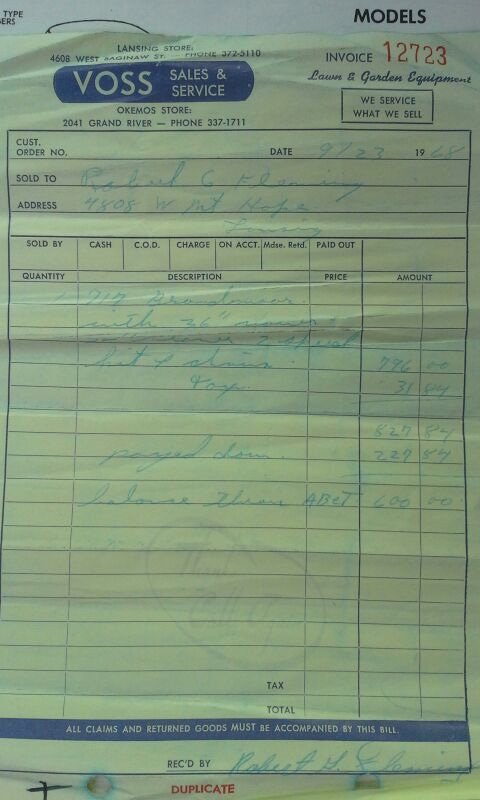 TYPE
MODELS
LANSING STORE:
4608 WEST SAGINAW ST. PHONE 372-5110
INVOICE 12723
VOSS SALES & SERVICE
Lawn & Garden Equipment
OKEMOS STORE:
2041 GRAND RIVER — PHONE 337-1711
WE SERVICE
WHAT WE SELL
CUST.
ORDER NO.
DATE 9/23 1968
SOLD TO Robert G Fleming
ADDRESS 4808 W Mt Hope
Lansing
SOLD BY CASH C.O.D. CHARGE ON ACCT. Mdse. Retd. PAID OUT
QUANTITY DESCRIPTION PRICE AMOUNT
1 717 
with 36" mower
2 
kit & chains 796 00
Tax 31 84
827 84
payed down. 227 84
balance ABCT 600 00
Thank
TAX
TOTAL
ALL CLAIMS AND RETURNED GOODS MUST BE ACCOMPANIED BY THIS BILL.
REC'D BY Robert G. Fleming
DUPLICATE